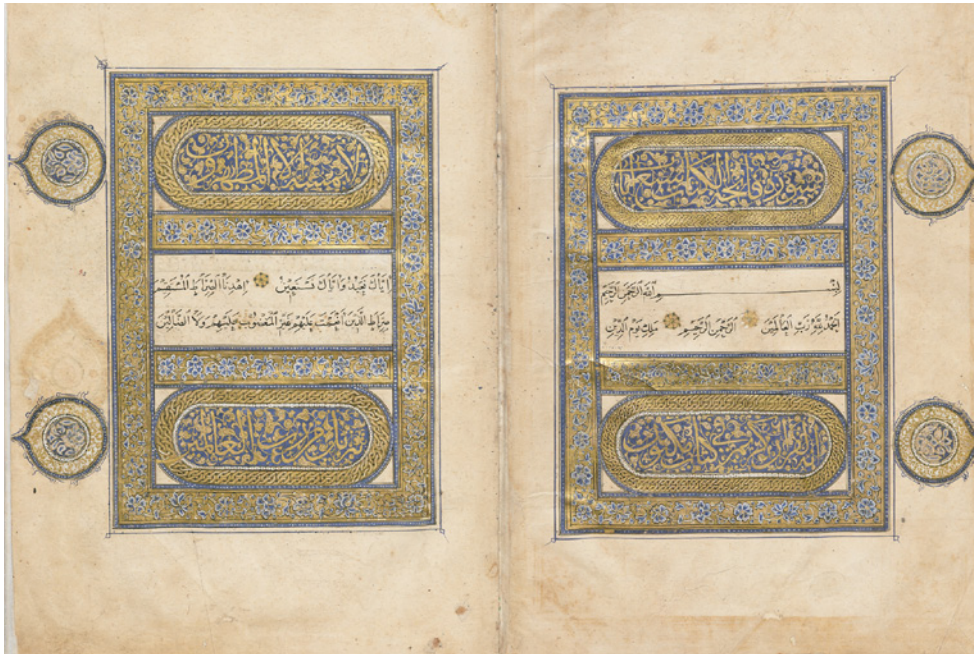 سورة فاتحة الكتاب سبع ايات
بسم الله الرحمن الرحيم
الحمد لله رب العالمين الرحمن الرحيم ملك يوم الدين
انه لقران كريم في كتاب مكنون
لا يمسه الا المطهرون
اياك نعبد واياك نستعين اهدنا الصراط المستقيم
صراط الذين انعمت عليهم غير المغضوب عليهم ولا الضالين
تنزيل من رب العالمين